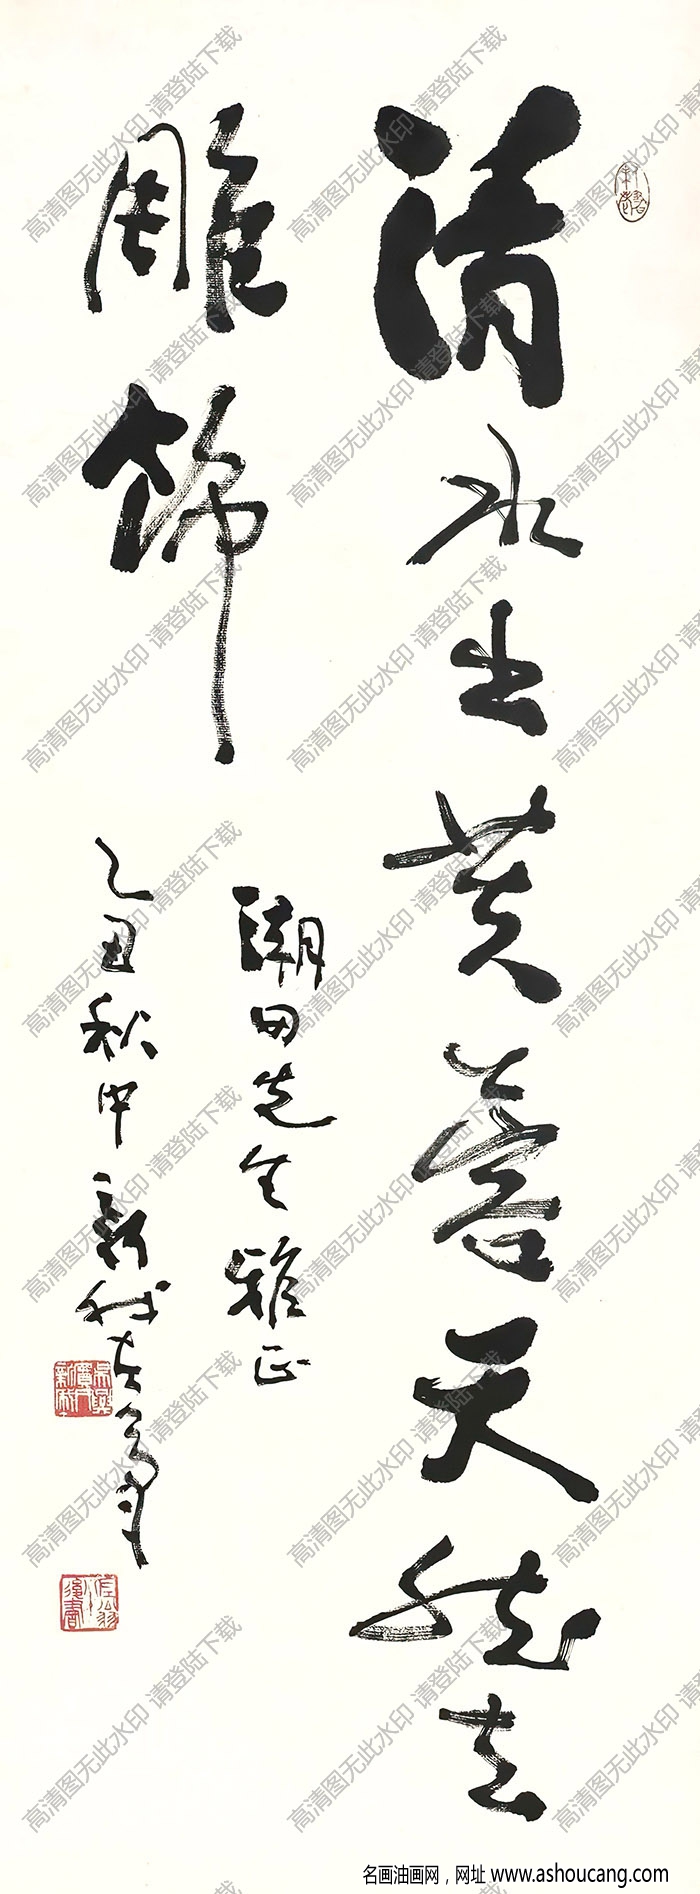 清水出芙蓉天然去
雕饰
潮田先生雅正
乙丑秋中新我左笔
高清图无此水印 请登陆下载
名画油画网，网址 www.ashoucang.com